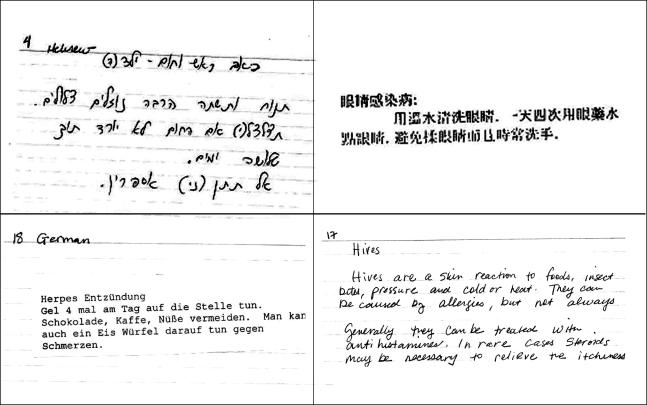 4 Hebrew
כאב ראש וחום - ילד (ה)
תנוח ותשתה הרבה נוזלים צלולים.
תצלצל(י) אם החום לא יורד תוך
שלושה ימים.
אל תתן (ני) אספרין.
眼睛感染病:
用溫水清洗眼睛. 一天四次用眼藥水
點眼睛. 避免揉眼睛而且時常洗手.
18 German
Herpes Entzündung
Gel 4 mal am Tag auf die Stelle tun.
Schokolade, Kaffe, Nüße vermeiden. Man kan
auch ein Eis Würfel darauf tun gegen
Schmerzen.
17
Hives
Hives are a skin reaction to foods, insect
bites, pressure and cold or heat. They can
be caused by allergies, but not always.
Generally they can be treated with
antihistamines. In rare cases steroids
may be necessary to relieve the itchiness